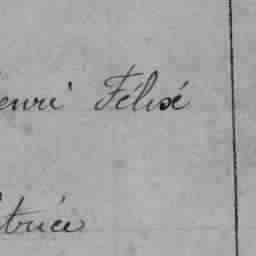 enri Félix
trice